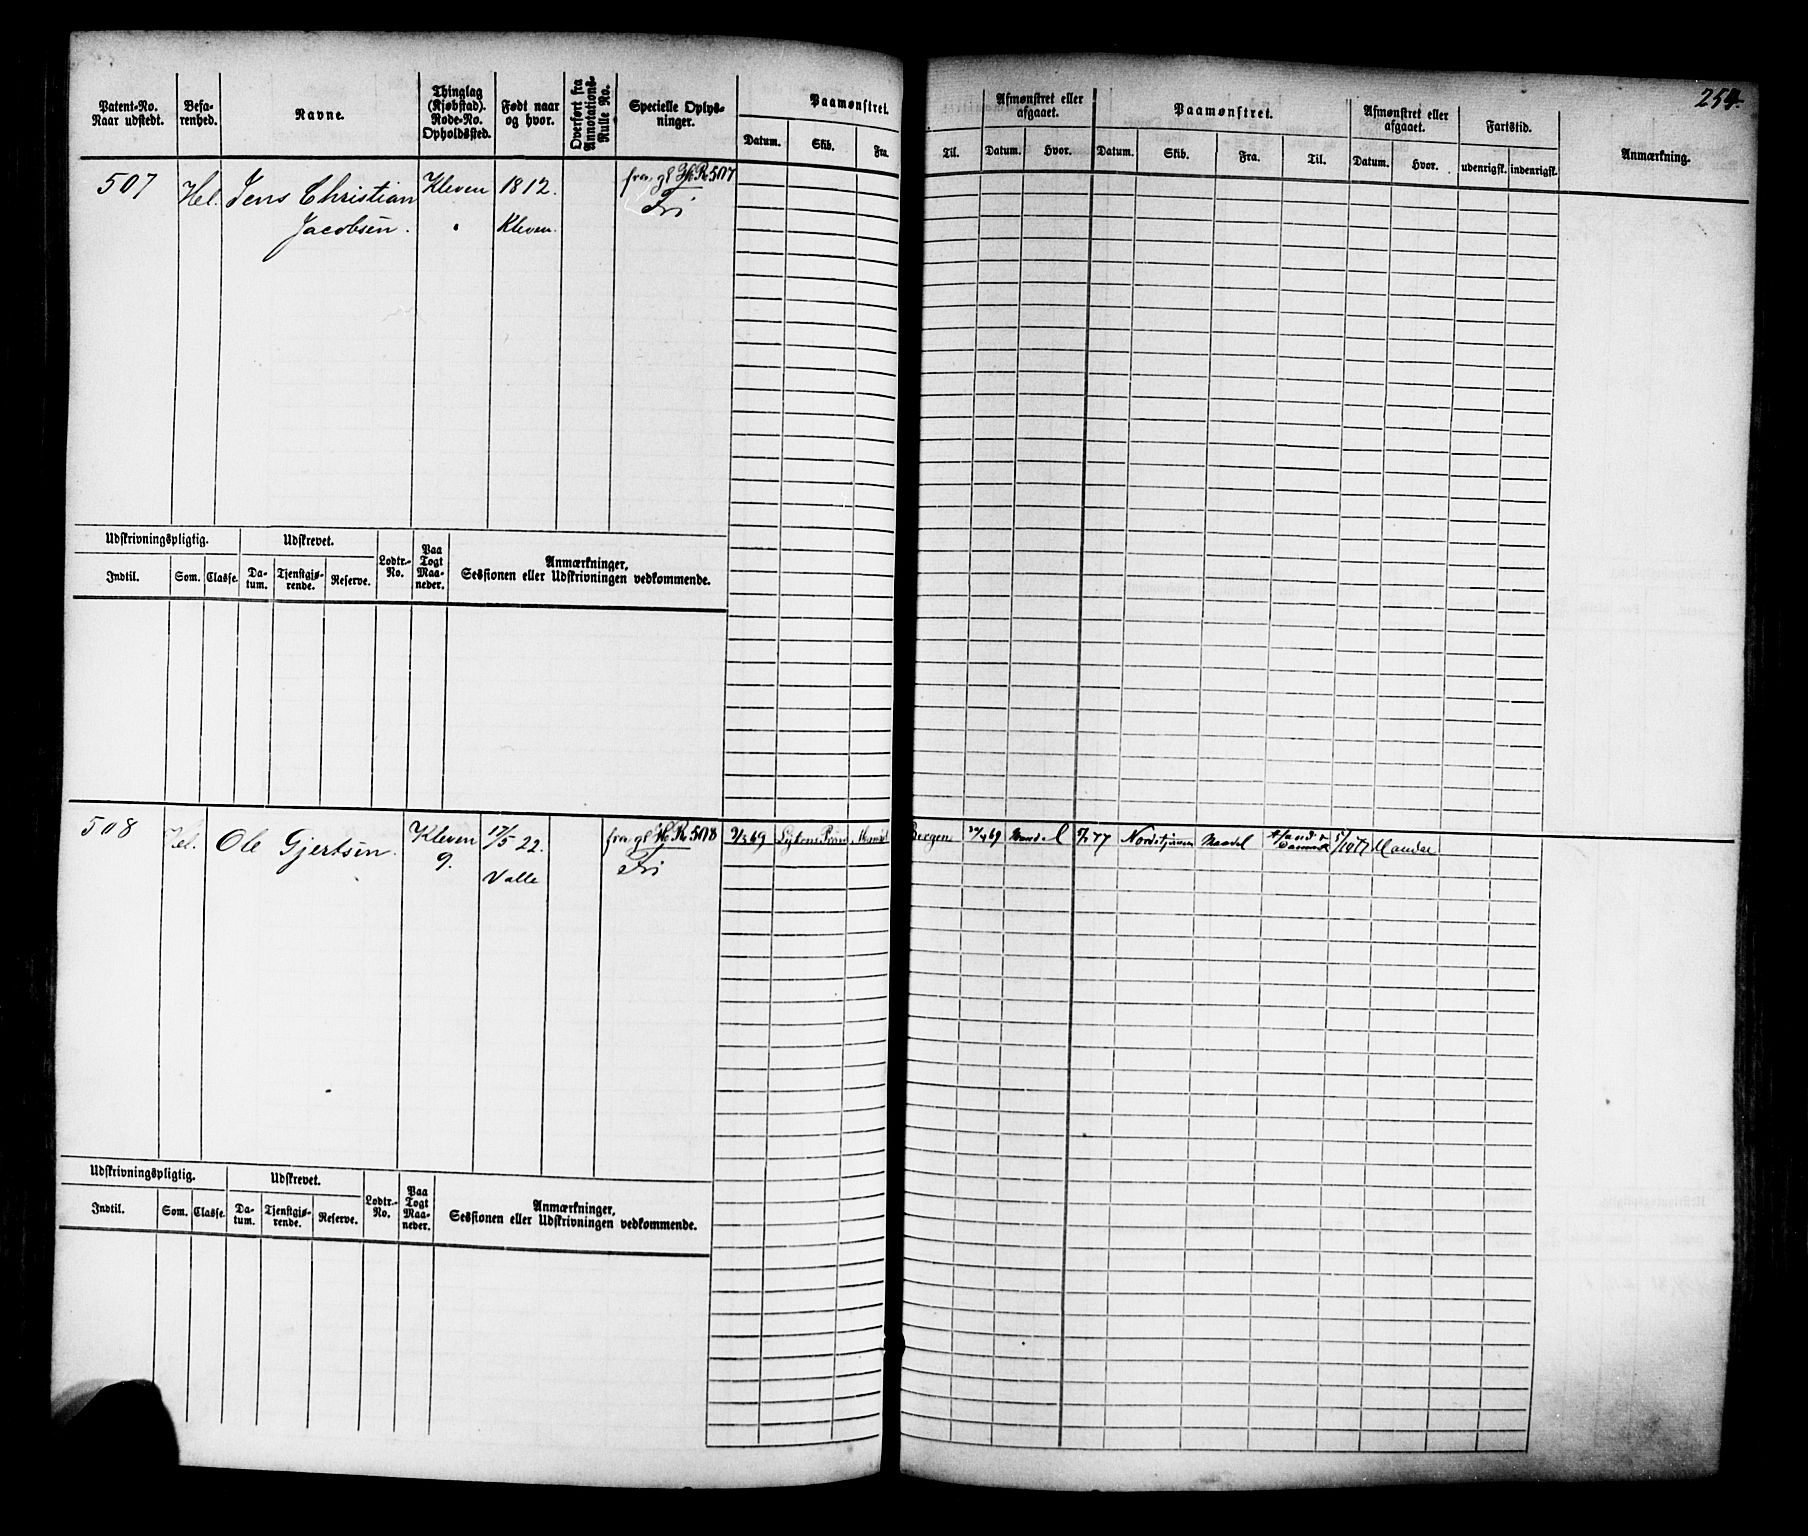 254.
Patent-No. Naar udstedt.
Befarenhed.
Navne.
Thinglag (Kjøbstad). Rode-No. Opholdssted.
Født naar og hvor.
Overført fra Annotations-Rulle No.
Specielle Oplysninger.
Paamønstret.
Datum. Skib. Fra. Til.
Afmønstret eller afgaaet.
Datum. Hvor.
Paamønstret.
Datum. Skib. Fra. Til.
Afmønstret eller afgaaet.
Datum. Hvor.
Fartstid.
udenrigsk. indenrigsk.
Anmærkning.
507 Hel. Jens Christian Kleven 1812. fra gl H. R. 507
Jacobsen. " Kleven. Fri
Udskrivningspligtig. Udskrevet. Lodtr.-No. Paa Togt Maaneder. Anmærkninger, Sessionen eller Udskrivningen vedkommende.
Indtil. Som. Classe. Datum. Tjenstgjørende. Reserve.
508 Hel. Ole Gjertsen. Kleven 17/5 22. fra gl H. R. 508 2/3 69 Mandal Bergen 69 Mandal 77 Nordstjernen Mandal Mandal
9. Valle Fri
Udskrivningspligtig. Udskrevet. Lodtr.-No. Paa Togt Maaneder. Anmærkninger, Sessionen eller Udskrivningen vedkommende.
Indtil. Som. Classe. Datum. Tjenstgjørende. Reserve.